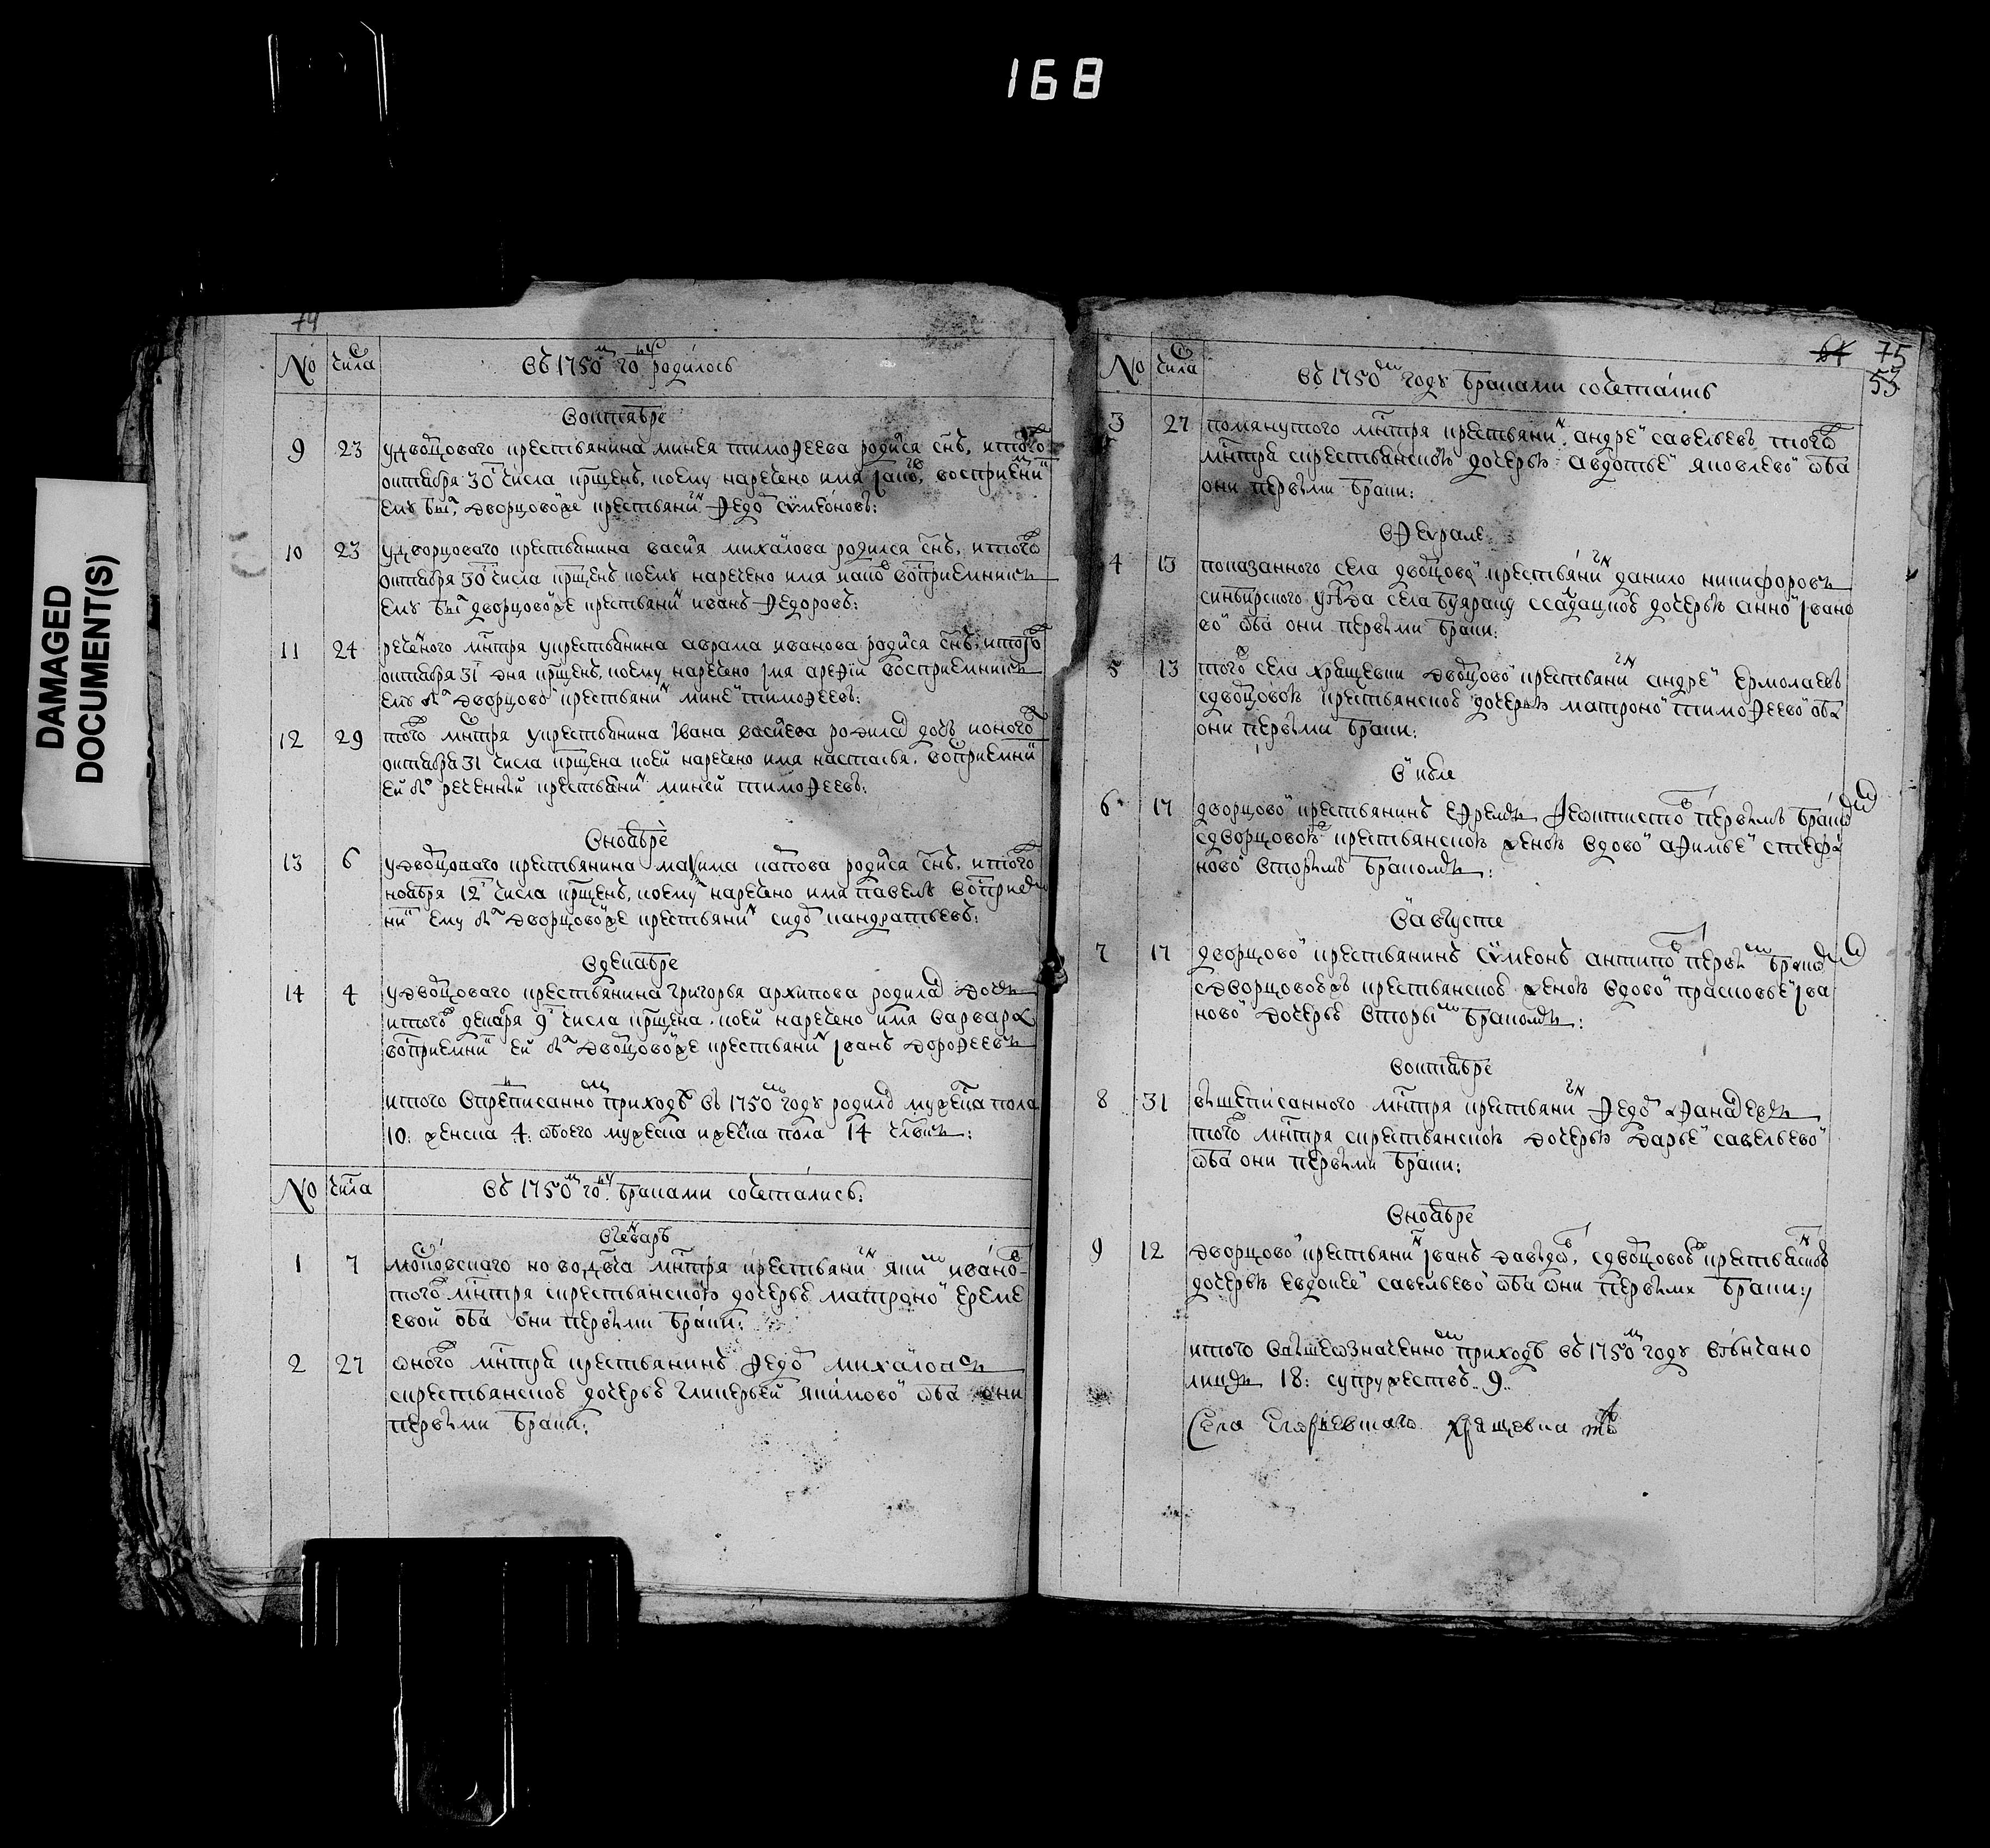 168
DAMAGED
DOCUMENT(S)
74
No числа Въ 1750м году родилось
Воктябре
9 23 у дворцоваго крестьянина минея тимофеева родился снъ, и того
октября 30 числа крщенъ, коему наречено имя иаковъ, восприемник
ему был дворцовой же крестьянин федор сүмеоновъ:
10 23 у дворцоваго крестьянина василя михаилова родился снъ, и того
октября 30 числа крщенъ коему наречено имя иаков восприемникъ
ему был дворцовой же крестьянин иванъ федоровъ:
11 24 реченого мнтря у крестьянина аврама иванова родился снъ, и того
октября 31 дня крщенъ, коему наречено имя арефiи восприемникъ
ему был дворцовой крестьянин миней тимофеевъ:
12 29 того мнтря у крестьянина Iвана василева родилас дочь и оного
октября 31 числа крщена коей наречено имя настасья, восприемник
ей был реченный крестьянин миней тимофеевъ:
Вноябре
13 6 у дворцоваго крестьянина маѯима карпова родился снъ, и того
ноября 12 числа крщенъ, коему наречено имя павелъ восприем
ник ему был дворцовой же крестьянин сидор кандратьевъ:
Вдекабре
14 4 у дворцоваго крестьянина григорья архипова родилас дочь
и того декабря 9 числа крщена, коей наречено имя варвара
восприемник ей был дворцовой же крестьянин Iванъ дорофеевъ
итого в приходе въ 1750м году родилос мужеска пола
10: женска 4: обоего мужеска и женска пола 14 члвкъ:
No числа Въ 1750м году браками сочетались:
Вгенваръ
1 7 московскаго новодвча мнтря крестьянин яким иванов
того мнтря с крестьянской дочерью матроной ереме
евой оба они первыми браки:
2 27 оного мнтря крестьянинъ федор михаилов
с крестьянской дочерью гликерьей якимовой оба они
первыми браки:
64 75
53
No числа Въ 1750м году браками сочетались
3 27 помянутого мнтря крестьянин андрей савельевъ того
мнтря с крестьянской дочерью авдотьей яковлевой оба
они первыми браки:
Вфеврале
4 13 показанного села дворцовой крестьянин данило никифоровъ
синбирского уѣзда села с дочерью анной Iвано
вой оба они первыми браки:
5 13 того села хрящевки дворцовой крестьянин андрей ермолаевъ
с дворцовой крестьянской дочерью матроной тимофеевой оба
они первыми браки:
В июле
6 17 дворцовой крестьянинъ ефремъ первымъ браком
с дворцовой крестьянской женкой вдовой афимьей стефа
новой вторымъ бракомъ:
Вавгусте
7 17 дворцовой крестьянинъ сүмеонъ антипов первым браком
с дворцовой крестьянской женкой вдовой прасковьей Iва
новой дочерью вторым бракомъ:
Воктябре
8 31 вышеписанного мнтря крестьянин федор афанасевъ
того мнтря с крестьянской дочерью дарьей савельевой
оба они первыми браки:
Вноябре
9 12 дворцовой крестьянин Iванъ давыдов, с дворцовой крестьянской
дочерью евдокеей савельевой оба они первыми браки:
итого в вышеозначенном приходе въ 1750м году вѣнчано
лицъ 18: супружествъ 9.
Села Хрящевка